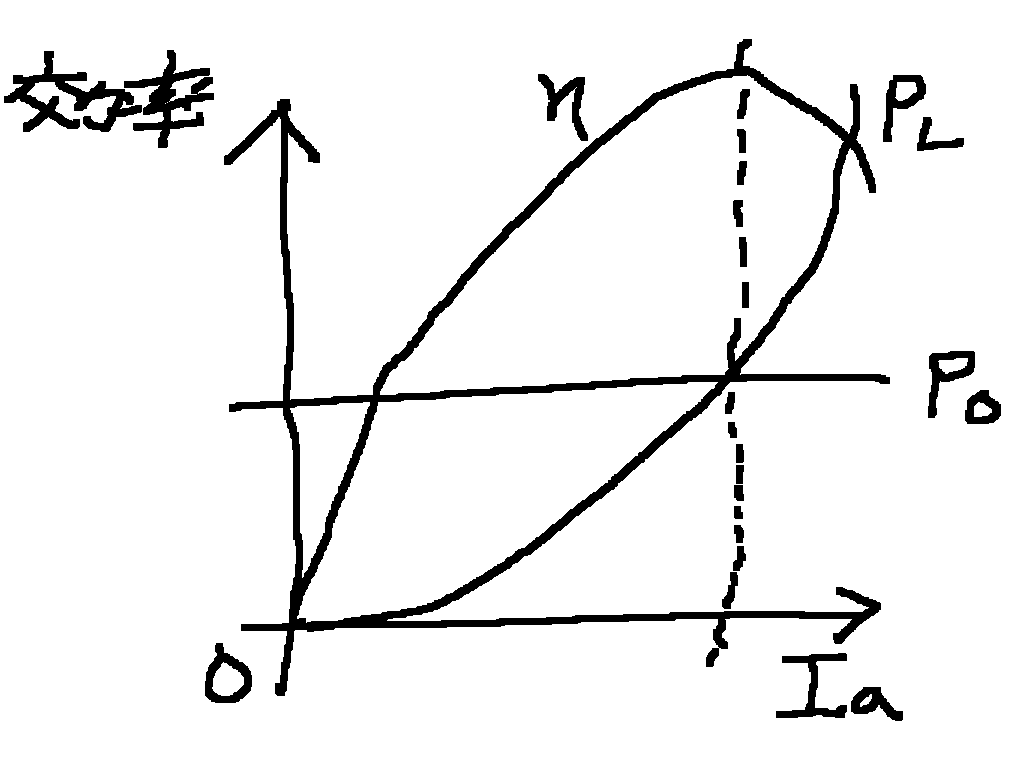 効率
η
PL
P0
0
Ia